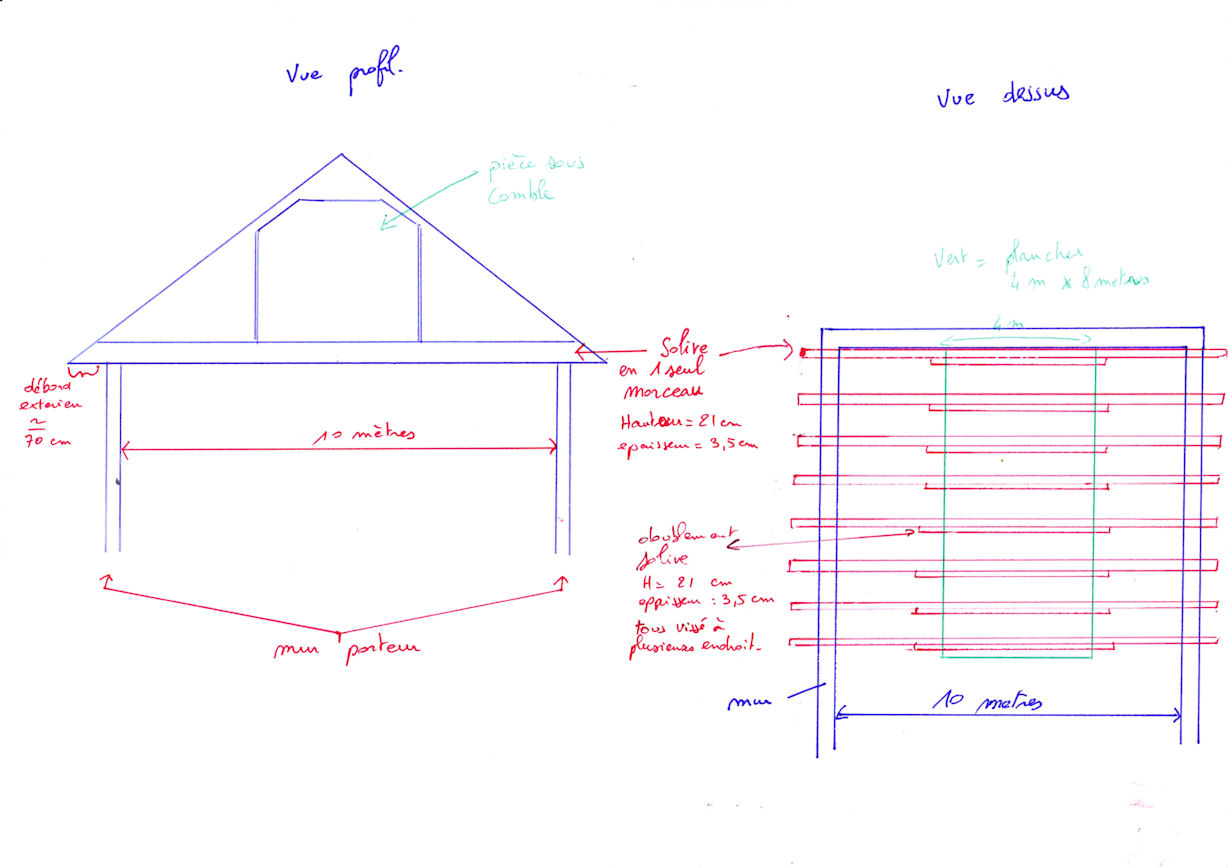 Vue profil.
Vue dessus
pièce sous
comble
Vert = plancher
4 m x 8 metres
4 m
Solive
en 1 seul
morceau
Hauteur = 21 cm
epaisseur = 3,5 cm
débord
exterieur
≃
70 cm
10 mètres
doublement
solive
H = 21 cm
eppisseur : 3,5 cm
tous vissé à
plusieurs endroit.
mur porteur
mur
10 metres